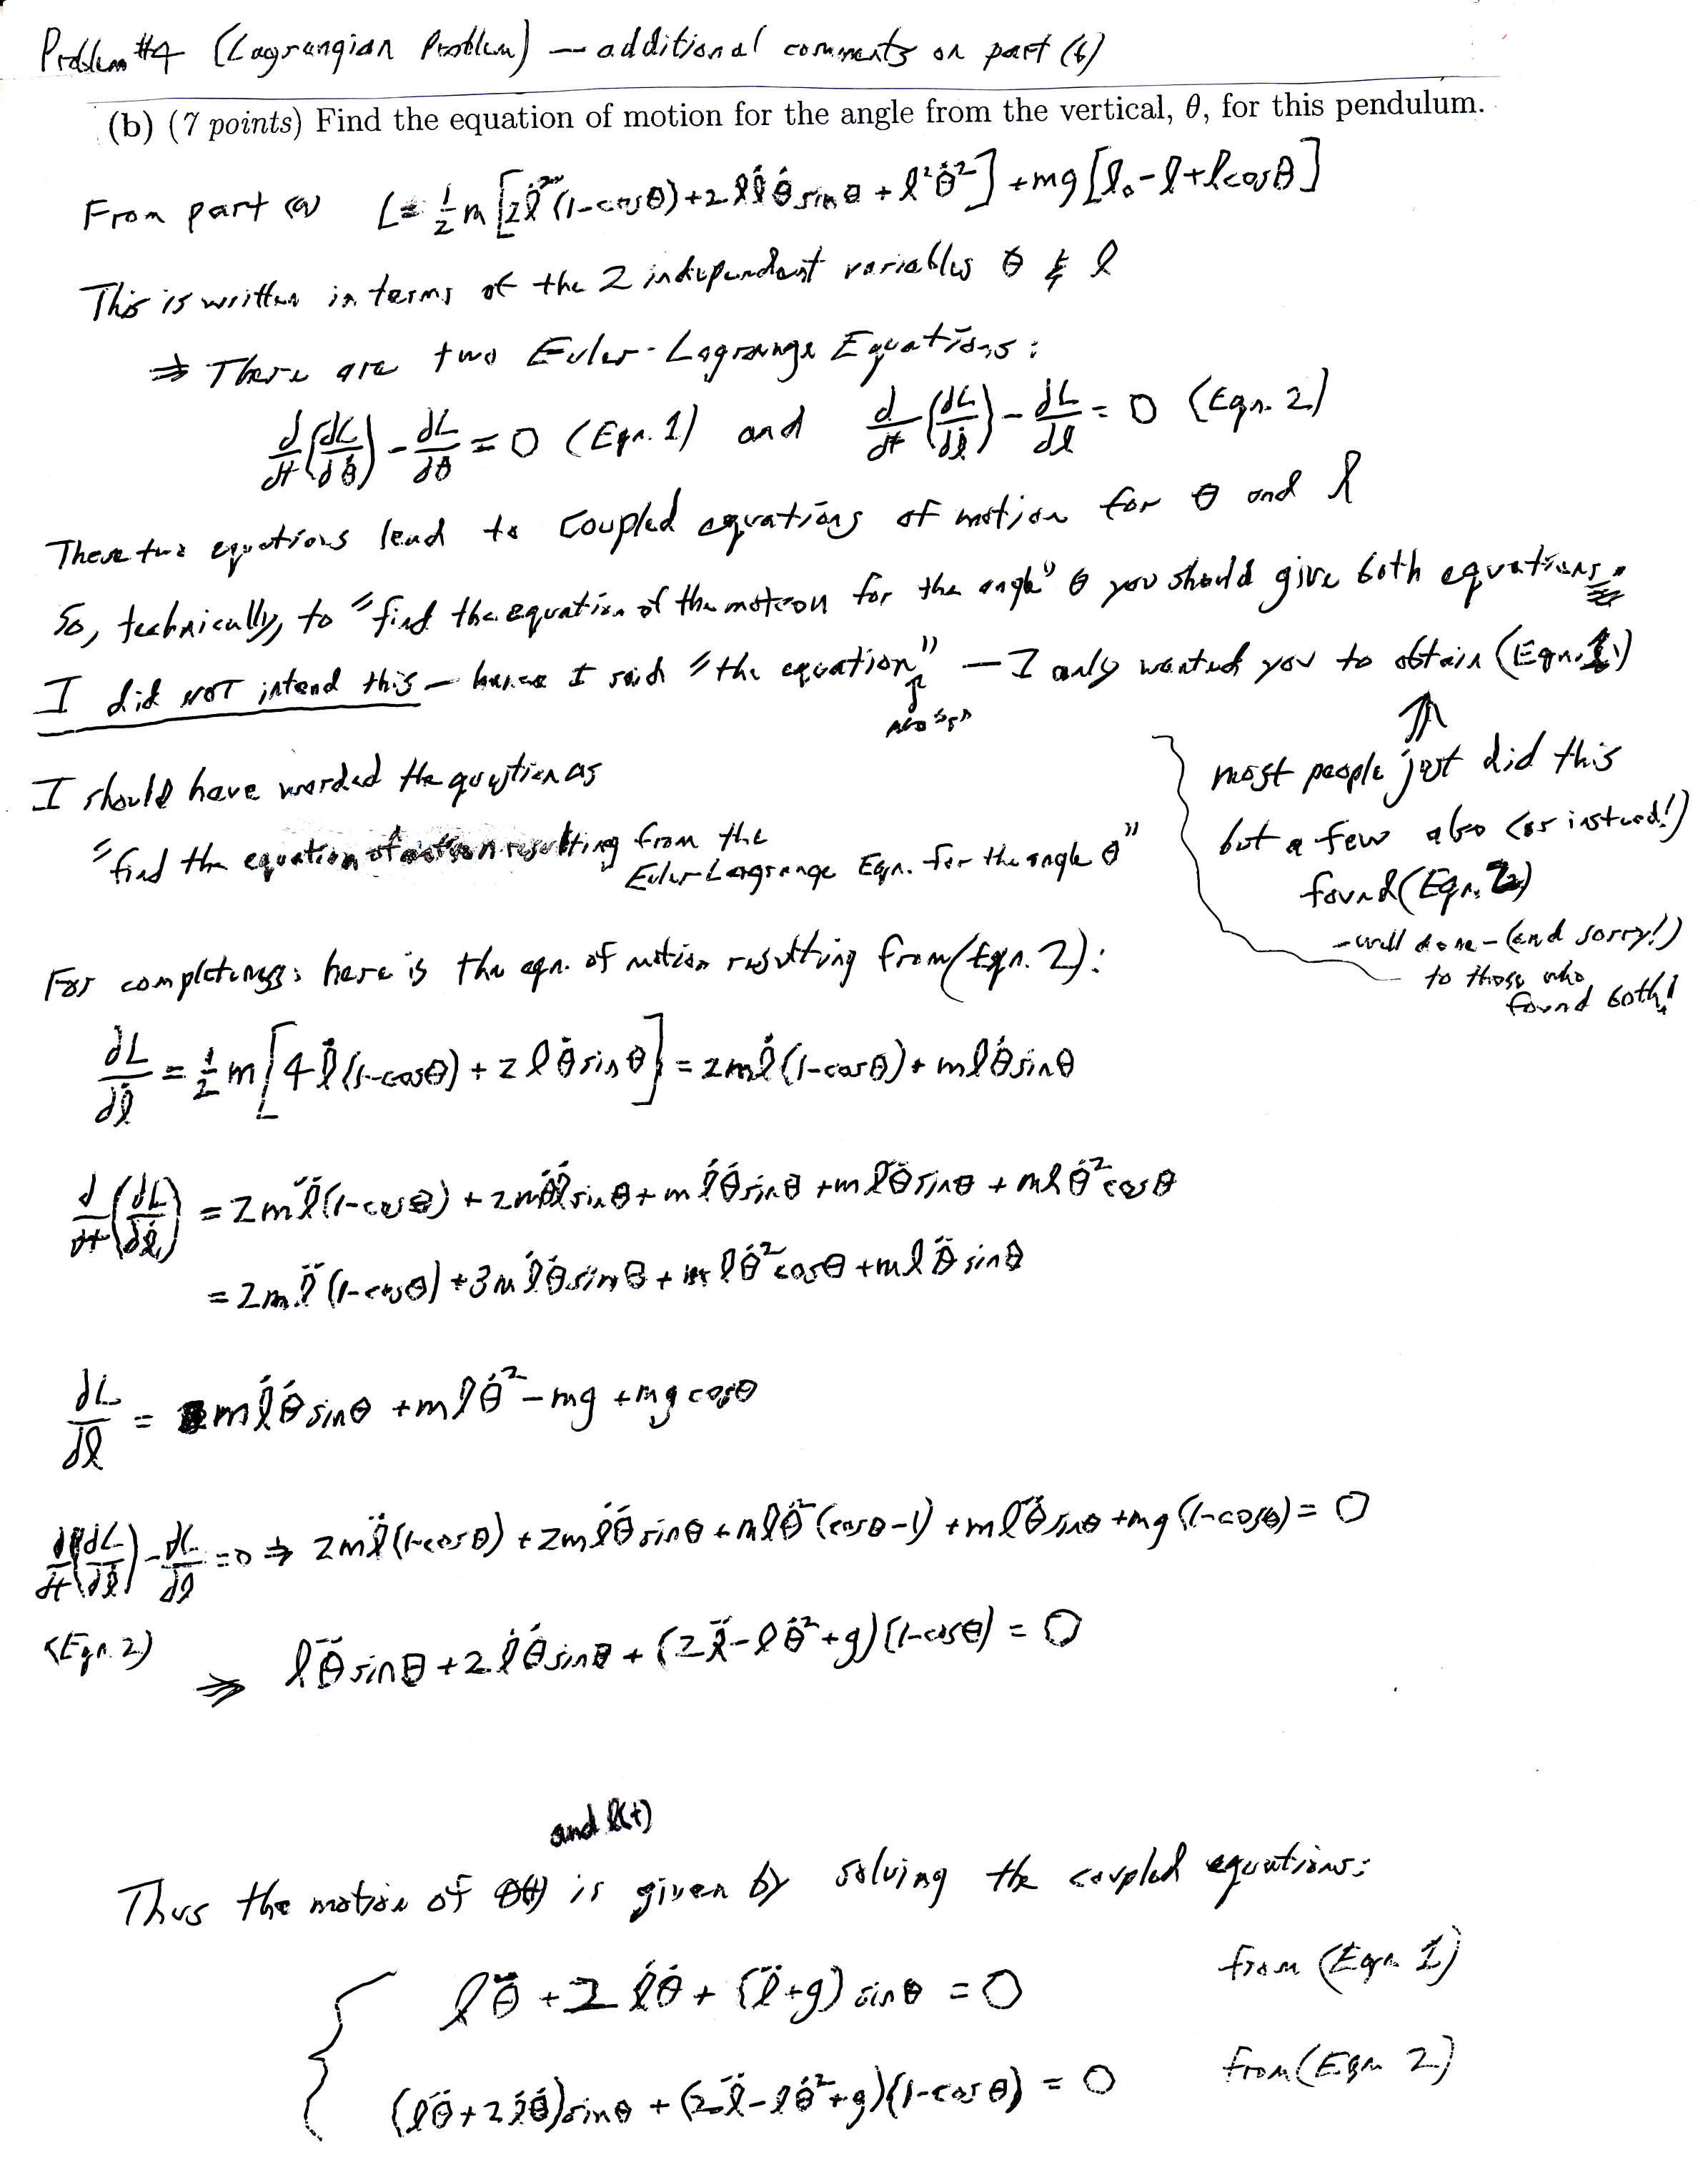 Problem #4 (Lagrangian Problem) — additional comments on part (b)
(b) (7 points) Find the equation of motion for the angle from the vertical, θ, for this pendulum.
From part (a) L = ½ m [2l̇²(1-cosθ) + 2 l l̇ θ̇ sinθ + l²θ̇²] + mg [l₀ - l + l cosθ]
This is written in terms of the 2 independent variables θ & l
⇒ There are two Euler-Lagrange Equations:
d/dt (dL/dθ̇) - dL/dθ = 0 (Eqn. 1) and d/dt (dL/dl̇) - dL/dl = 0 (Eqn. 2)
These two equations lead to coupled equations of motion for θ and l
So, technically, to "find the equation of the motion for the angle" θ you should give both equations.
I did NOT intend this — hence I said "the equation" — I only wanted you to obtain (Eqn. 1)
↑ no "s"
⇑
most people just did this
but a few also (or instead!)
found (Eqn. 2)
- well done - (and sorry!)
to those who
found both!
I should have worded the question as
"find the equation of motion resulting from the
Euler-Lagrange Eqn. for the angle θ"
For completeness, here is the eqn. of motion resulting from (Eqn. 2):
∂L/∂l̇ = ½ m [4 l̇ (1-cosθ) + 2 l θ̇ sinθ] = 2m l̇ (1-cosθ) + m l θ̇ sinθ
d/dt (dL/dl̇) = 2m l̈ (1-cosθ) + 2m θ̇ l̇ sinθ + m l̇ θ̇ sinθ + m l θ̈ sinθ + m l θ̇² cosθ
= 2m l̈ (1-cosθ) + 3m l̇ θ̇ sinθ + m l θ̇² cosθ + m l θ̈ sinθ
dL/dl = m l̇ θ̇ sinθ + m l θ̇² - mg + mg cosθ
d/dt (dL/dl̇) - dL/dl = 0 ⇒ 2m l̈ (1-cosθ) + 2m l̇ θ̇ sinθ + m l θ̇² (cosθ-1) + m l θ̈ sinθ + mg (1-cosθ) = 0
(Eqn. 2)
⇒ l θ̈ sinθ + 2 l̇ θ̇ sinθ + (2 l̈ - l θ̇² + g)(1-cosθ) = 0
and l(t)
Thus the motion of θ(t) is given by solving the coupled equations:
l θ̈ + 2 l̇ θ̇ + (l̈ + g) sinθ = 0 from (Eqn. 1)
(l θ̈ + 2 l̇ θ̇) sinθ + (2 l̈ - l θ̇² + g)(1-cosθ) = 0 from (Eqn. 2)